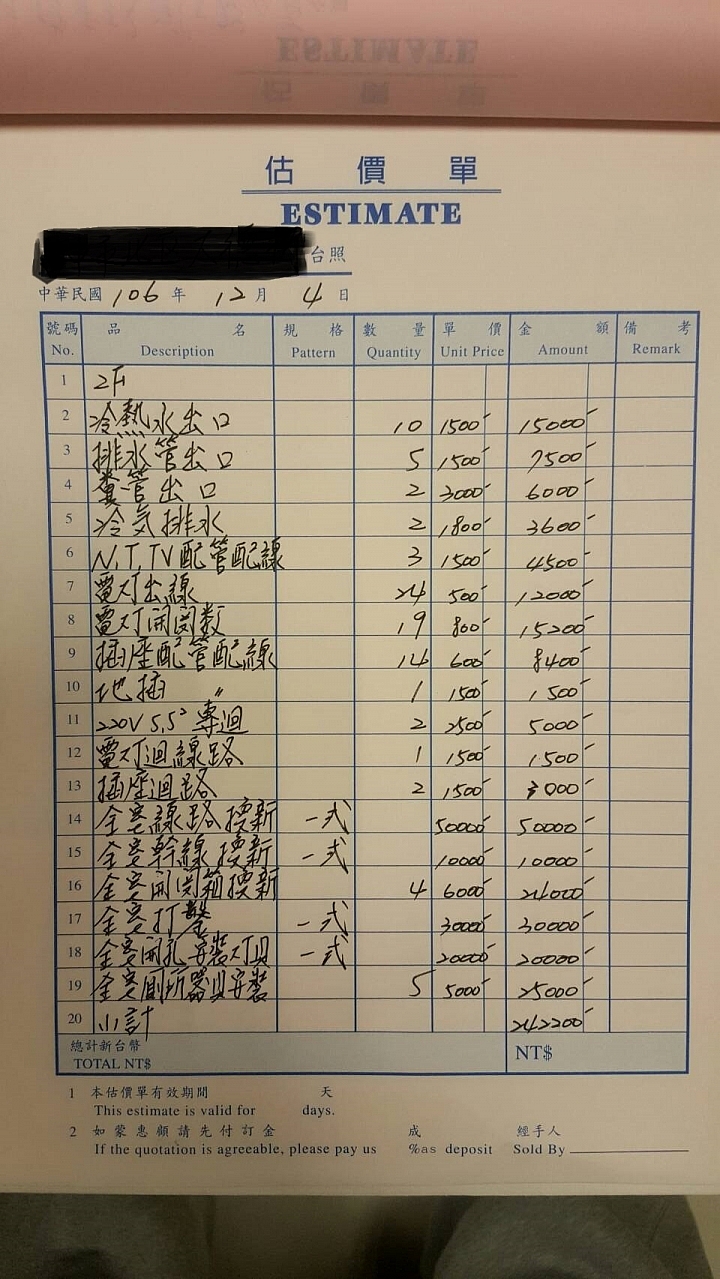 估價單
ESTIMATE
台照
中華民國 106 年 12 月 4 日
號碼 品名 規格 數量 單價 金額 備考
No. Description Pattern Quantity Unit Price Amount Remark
1 2F
2 冷熱水出口 10 1500 15000
3 排水管出口 5 1500 7500
4 糞管出口 2 3000 6000
5 冷気排水 2 1800 3600
6 N,T,TV配管配線 3 1500 4500
7 電灯出線 24 500 12000
8 電灯開関数 19 800 15200
9 插座配管配線 14 600 8400
10 地插 〃 1 1500 1500
11 220V 5.5² 專迴 2 2500 5000
12 電灯迴線路 1 1500 1500
13 插座迴路 2 1500 3000
14 全室線路換新 一式 50000 50000
15 全室幹線換新 一式 10000 10000
16 全室開関箱換新 4 6000 24000
17 全室打鑿 一式 30000 30000
18 全室開孔安裝灯具 一式 20000 20000
19 全室廁所器具安裝 5 5000 25000
20 小計 242200
總計新台幣
TOTAL NT$ NT$
1 本估價單有效期間 天
This estimate is valid for days.
2 如蒙惠顧請先付訂金 成 經手人
If the quotation is agreeable, please pay us %as deposit Sold By